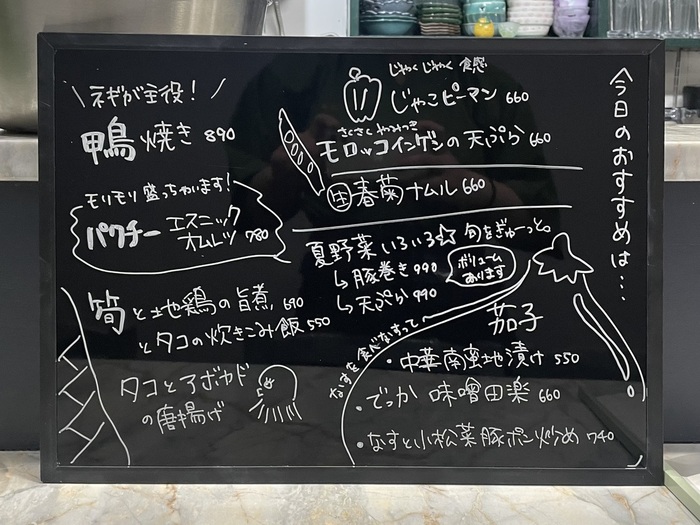 今日のおすすめは…
じゃく じゃく 食感
じゃこピーマン 660
さくさく やみつき
モロッコインゲンの天ぷら 660
春菊ナムル 660
夏野菜いろいろ☆ 旬をぎゅーっと。
↳豚巻き 990
↳天ぷら 990
ボリューム
あります
なすを食べなすって
茄子
・中華南蛮地漬け 550
・でっか 味噌田楽 660
・なすと小松菜豚ポン炒め 740
\ネギが主役!/
鴨焼き 890
モリモリ盛っちゃいます!
パクチー エスニック
オムレツ 780
筍と地鶏の旨煮 690
とタコの炊きこみ飯 550
タコとアボカド
の唐揚げ